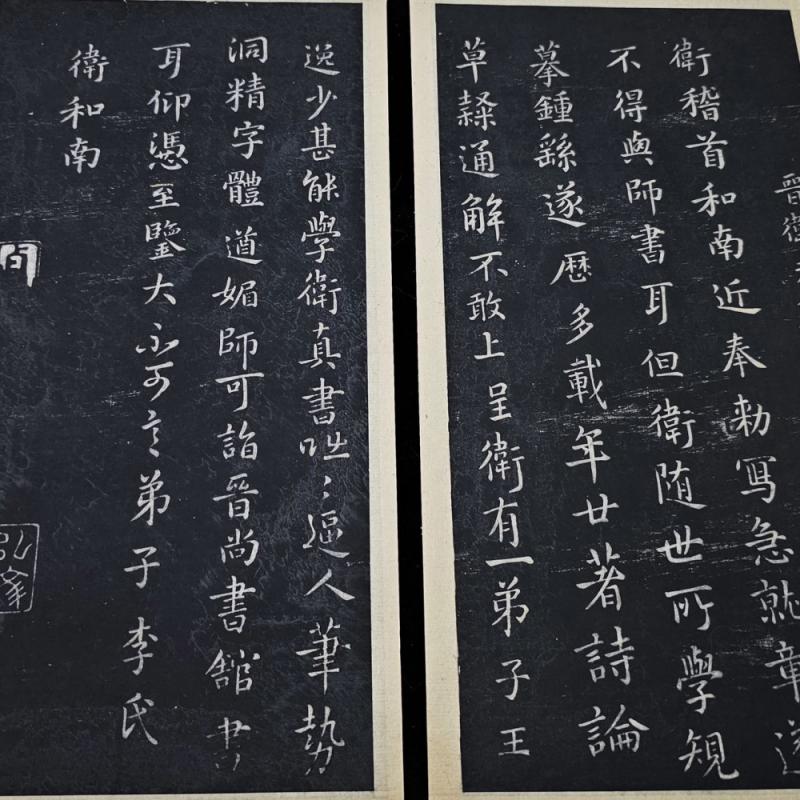 晉衛
衛稽首和南近奉勅寫急就章遂
不得與師書耳但衛随世所學規
摹鍾繇遂歷多載年廿著詩論
草隸通解不敢上呈衛有一弟子王
逸少甚能學衛真書咄〻逼人筆勢
洞精字體遒媚師可詣晉尚書館書
耳仰憑至鑒大不可言弟子李氏
衛和南